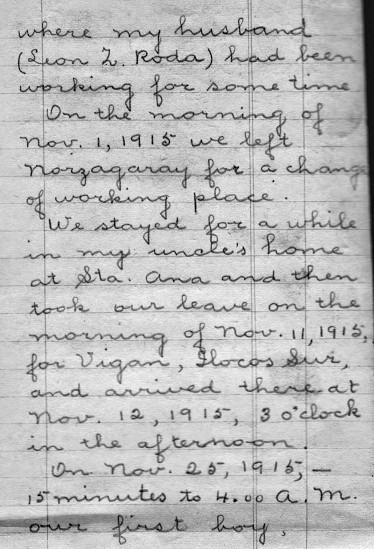 where my husband
(Leon Z. Roda) had been
working for some time
On the morning of
Nov. 1, 1915 we left
Norzagaray for a change
of working place.
We stayed for a while
in my uncle's home
at Sta. Ana and then
took our leave on the
morning of Nov. 11, 1915,
for Vigan, Ilocos Sur,
and arrived there at
Nov. 12, 1915, 3 o'clock
in the afternoon.
On Nov. 25, 1915, —
15 minutes to 4.00 A.M.
our first boy,